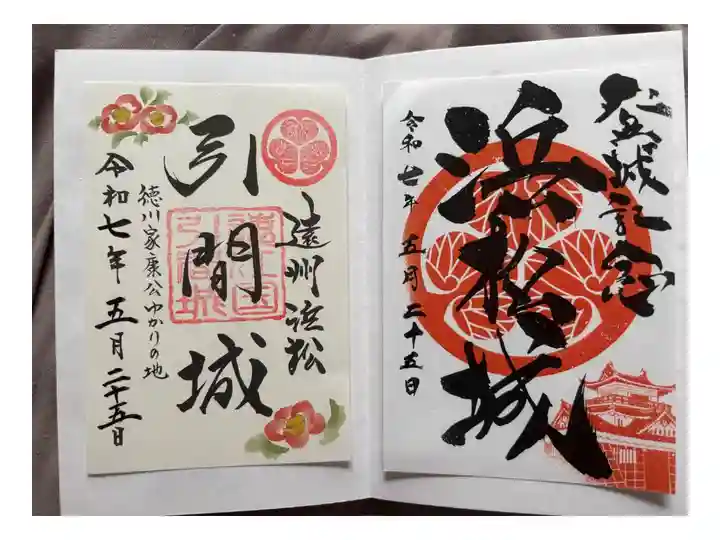 登城記念
浜松城
令和七年 五月二十五日
遠州浜松
引間城
遠江国
引間城
徳川家康公ゆかりの地
令和七年 五月二十五日